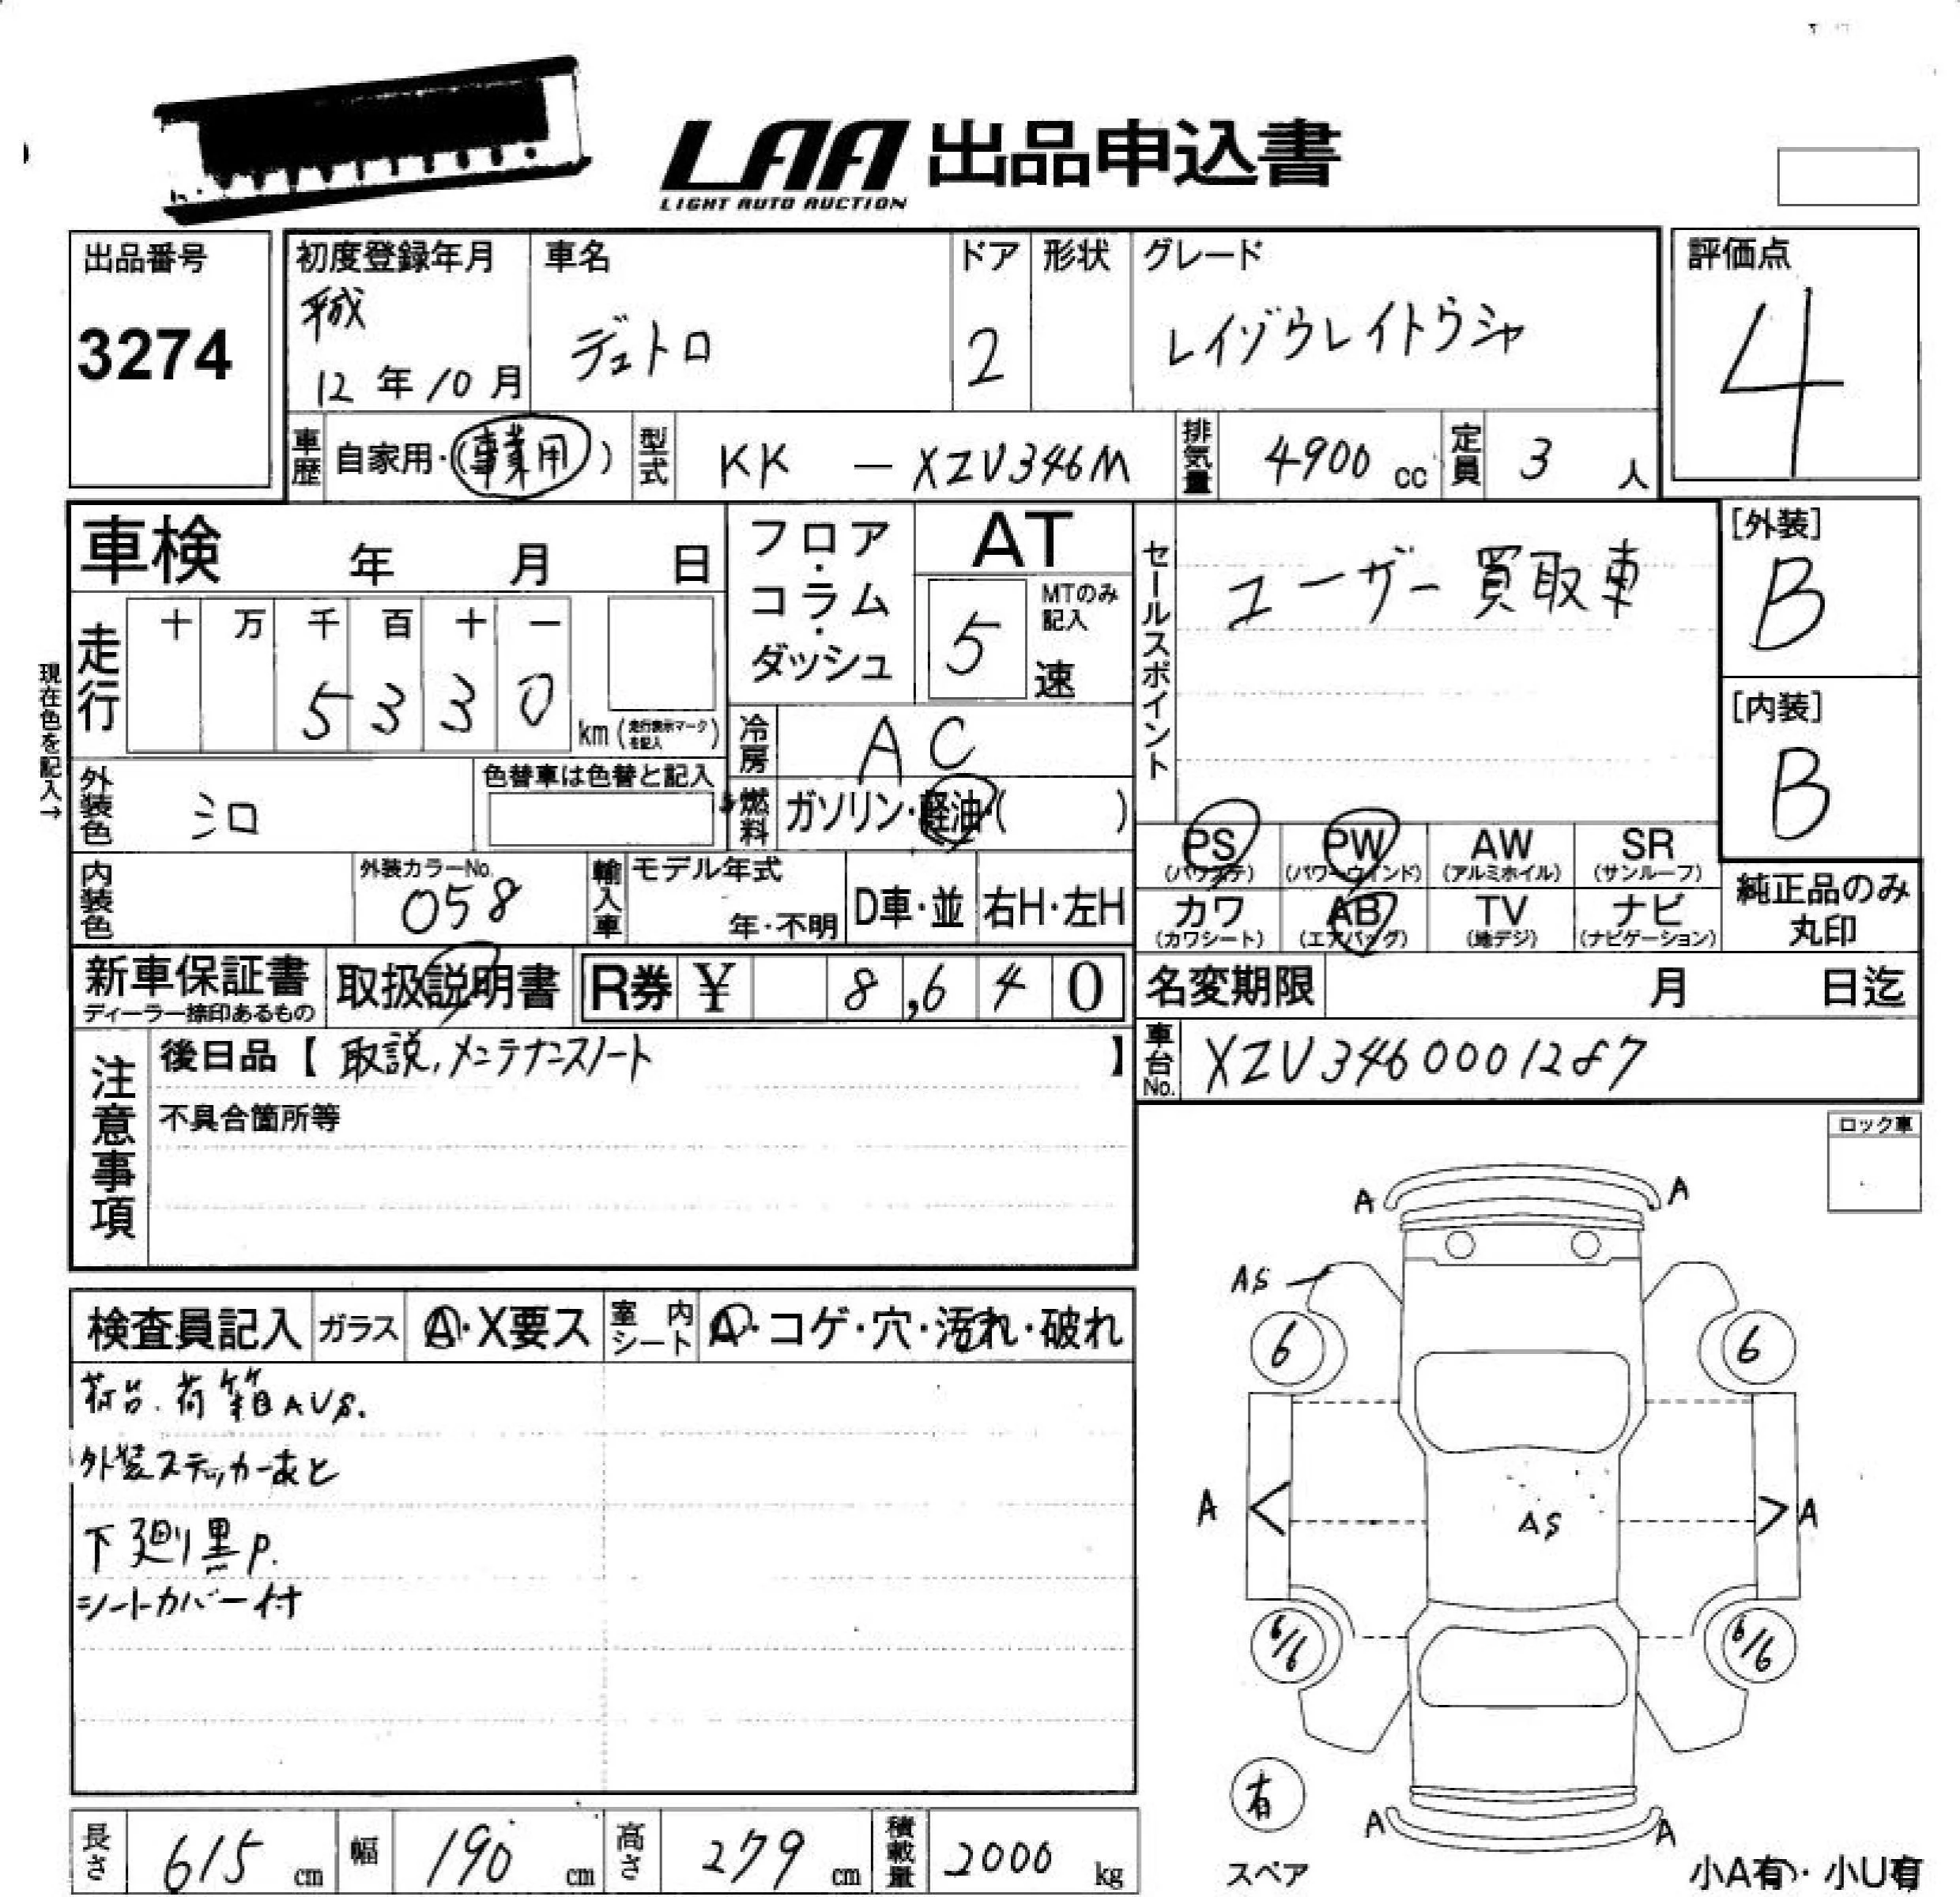 LAA 出品申込書
LIGHT AUTO AUCTION
出品番号
3274
初度登録年月
平成
12年10月
車名
デュトロ
ドア
2
形状
グレード
レイゾウレイトウシャ
評価点
4
車歴
自家用・(事業用)
型式
KK - XZU346M
排気量
4900 cc
定員
3 人
車検 年 月 日
現在色を記入→
走行
十 万 千 百 十 一
5 3 3 0
km (走行表示マークを記入)
フロア・コラム・ダッシュ
AT
5
MTのみ記入
速
冷房
AC
燃料
ガソリン・軽油・( )
外装色
シロ
色替車は色替と記入
内装色
外装カラーNo.
058
輸入車
モデル年式
年・不明
D車・並
右H・左H
新車保証書
ディーラー捺印あるもの
取扱説明書
R券 ¥ 8,640
セールスポイント
ユーザー買取車
[外装]
B
[内装]
B
PS
(パワステ)
PW
(パワーウインド)
AW
(アルミホイル)
SR
(サンルーフ)
カワ
(カワシート)
AB
(エアバッグ)
TV
(地デジ)
ナビ
(ナビゲーション)
純正品のみ
丸印
名変期限 月 日迄
車台No.
XZU3460001287
注意事項
後日品【 取説,メンテナンスノート 】
不具合箇所等
ロック車
検査員記入
ガラス
A・X要ス
室内シート
A・コゲ・穴・汚れ・破れ
荷台.荷箱AUS.
外装ステッカーあと
下廻り黒P.
シートカバー付
A
A
AS
6
6
A
A
AS
6/6
6/6
有
スペア
A
A
小A有・小U有
長さ
615 cm
幅
190 cm
高さ
279 cm
積載量
2000 kg